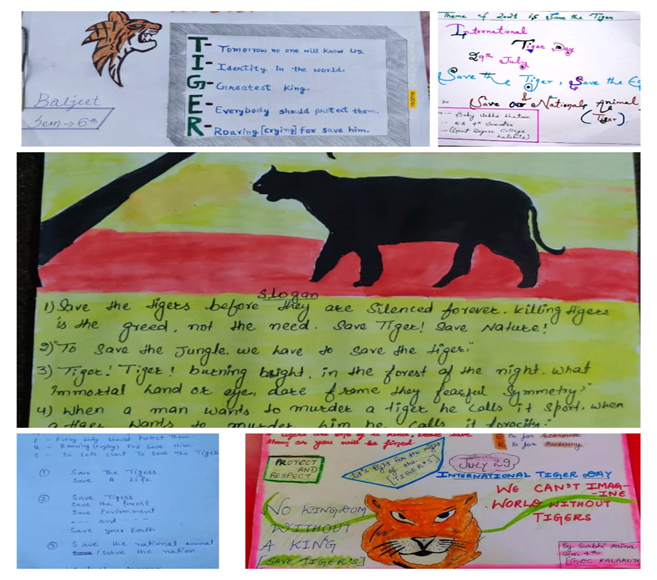 T- Tomorrow no one will know us
I- Identity in the world.
G- Greatest king.
E- Everybody should protect them.
R- Roaring [crying] for save him.
Baljeet
Sem → 6th
Theme of 2021 is Save the Tiger
International
Tiger Day
29th July
Save the Tiger, Save the
Save our National Animal
(Tiger)
Slogan
1) Save the tigers before they are Silenced forever. Killing tigers
is the greed, not the need. Save Tiger! Save Nature!
2) "To Save the Jungle, we have to save the tiger."
3) Tiger! Tiger! burning bright, in the forest of the night. What
immortal hand or eye, dare frame they fearful Symmetry;"
4) When a man wants to murder a tiger he calls it Sport. When
a tiger wants to murder him he calls it ferocity.
① Save the Tigers
Save a life
② Save Tigers
Save the forest
Save Environment
and
Save your Earth
③ Save the national animal
Save the nation
PROTECT
AND
RESPECT
Let's fight for the rights
of the
[TIGER'S]
JULY 29
INTERNATIONAL TIGER DAY
WE CAN'T IMAG-
-INE
WORLD WITHOUT
TIGERS
NO KINGDOM
WITHOUT
A KING
SAVE TIGER'S